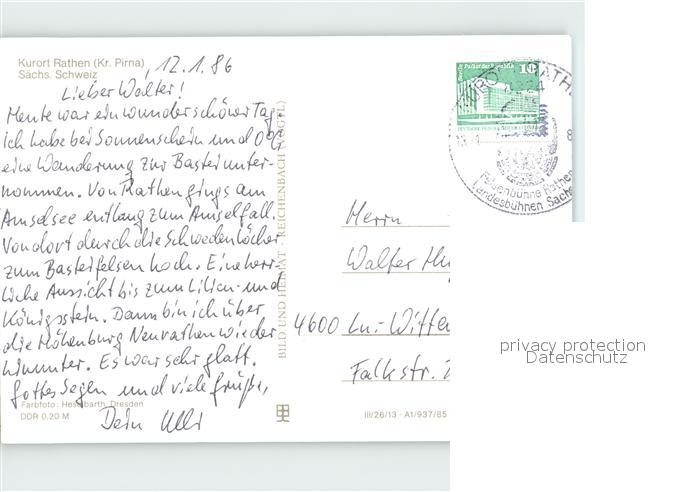 Kurort Rathen (Kr. Pirna)
Sächs. Schweiz
, 12.1.86
Lieber Walter!
Heute war ein wunderschöner Tag
ich habe bei Sonnenschein und 0°C
eine Wanderung zur Bastei unter-
nommen. Von Rathen gings am
Amselsee entlang zum Amselfall.
Von dort durch die Schwedenlöcher
zum Basteifelsen hoch. Eine herr-
liche Aussicht bis zum Lilien- und
Königsstein. Dann bin ich über
die Höhenburg Neurathen wieder
hinunter. Es war sehr glatt.
Gottes Segen und viele Grüße,
Dein Ulli
Farbfoto: Heselbarth, Dresden
DDR 0,20 M
BILD UND HEIMAT · REICHENBACH (VOGTL)
III/26/13 · A1/937/85
Berlin, Palast der Republik
10
DEUTSCHE DEMOKRATISCHE
8324
Felsenbühne Rathen
Landesbühnen Sachs
Herrn
Walter
4600 Lu.-Witte
Falkstr.
privacy protection
Datenschutz